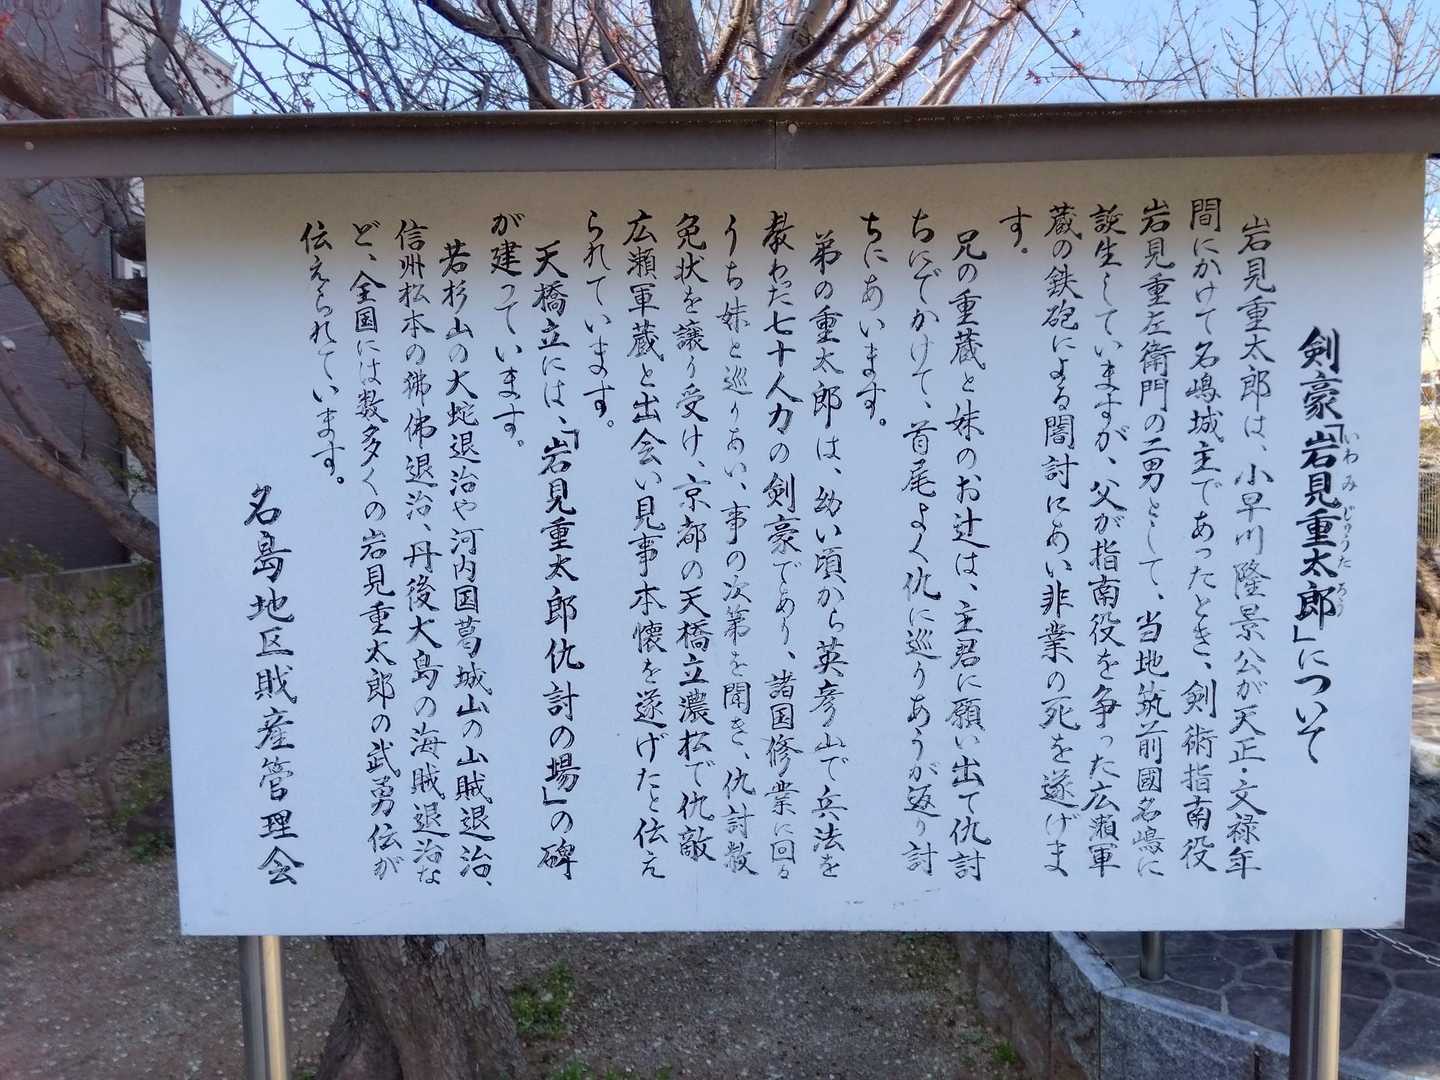 剣豪「岩見重太郎」について
いわみじゅうたろう
岩見重太郎は、小早川隆景公が天正・文禄年
間にかけて名嶋城主であったとき、剣術指南役
岩見重左衛門の二男として、当地筑前國名嶋に
誕生していますが、父が指南役を争った広瀬軍
蔵の鉄砲による闇討にあい非業の死を遂げま
す。
兄の重蔵と妹のお辻は、主君に願い出て仇討
ちにでかけて、首尾よく仇に巡りあうが返り討
ちにあいます。
弟の重太郎は、幼い頃から英彦山で兵法を
教わった七十人力の剣豪であり、諸国修業に回る
うち妹と巡りあい、事の次第を聞き、仇討赦
免状を譲り受け、京都の天橋立濃松で仇敵
広瀬軍蔵と出会い見事本懐を遂げたと伝え
られています。
天橋立には、「岩見重太郎仇討の場」の碑
が建っています。
若杉山の大蛇退治や河内国葛城山の山賊退治、
信州松本の狒佛退治、丹後大島の海賊退治な
ど、全国には数多くの岩見重太郎の武勇伝が
伝えられています。
名島地区財産管理会